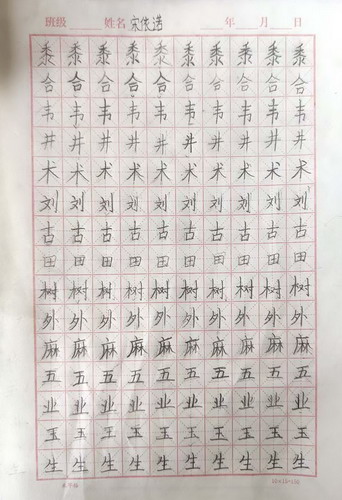 班级 姓名 宋俊浩 年 月 日
黍 黍 黍 黍 黍 黍 黍 黍 黍 黍
合 合 合 合 合 合 合 合 合 合
韦 韦 韦 韦 韦 韦 韦 韦 韦 韦
井 井 井 井 井 井 井 井 井 井
术 术 术 术 术 术 术 术 术 术
刘 刘 刘 刘 刘 刘 刘 刘 刘 刘
古 古 古 古 古 古 古 古 古 古
田 田 田 田 田 田 田 田 田 田
树 树 树 树 树 树 树 树 树 树
外 外 外 外 外 外 外 外 外 外
麻 麻 麻 麻 麻 麻 麻 麻 麻 麻
五 五 五 五 五 五 五 五 五 五
业 业 业 业 业 业 业 业 业 业
玉 玉 玉 玉 玉 玉 玉 玉 玉 玉
生 生 生 生 生 生 生 生 生 生